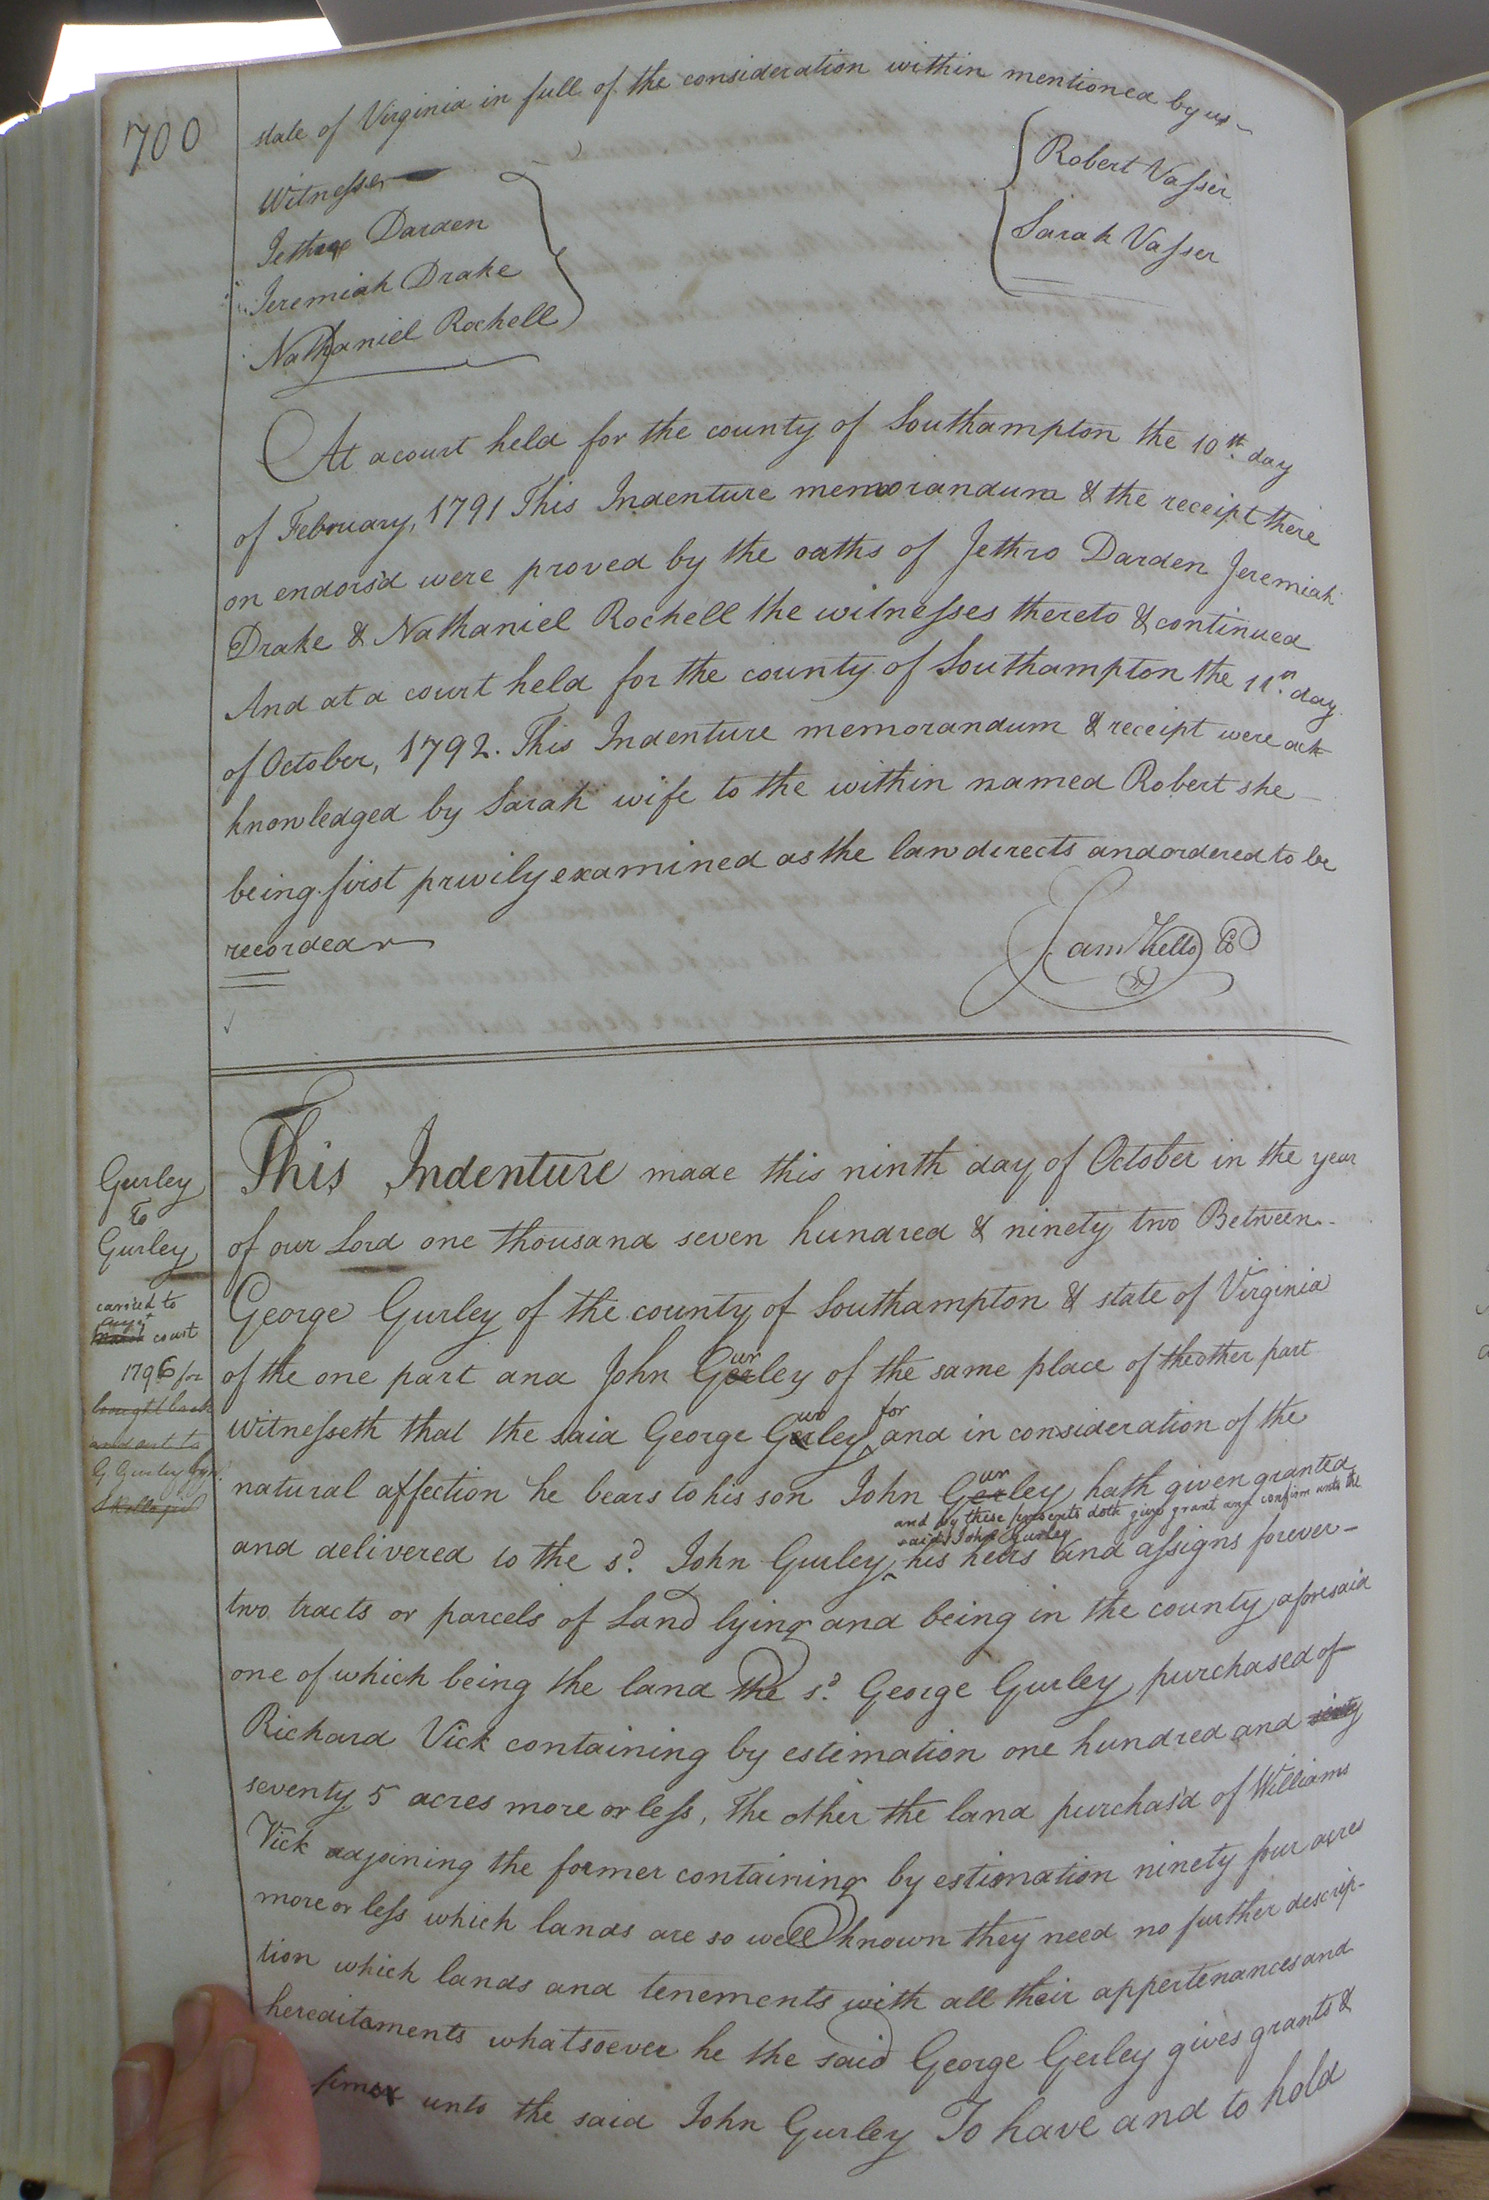 700
state of Virginia in full of the consideration within mentioned by us
Witnesses
Jethro Darden
Jeremiah Drake
Nathaniel Rochell
Robert Vasser
Sarah Vasser
At a court held for the county of Southampton the 10th day
of February, 1791 This Indenture memorandum & the receipt there
on endorsd were proved by the oaths of Jethro Darden Jeremiah
Drake & Nathaniel Rochell the witnesses thereto & continued
And at a court held for the county of Southampton the 11th day
of October, 1792. This Indenture memorandum & receipt were ack
knowledged by Sarah wife to the within named Robert she
being first privily examined as the law directs and ordered to be
recorded
Sam Kello CC
Gurley
To
Gurley
carried to
august
court
1796 for
This Indenture made this ninth day of October in the year
of our Lord one thousand seven hundred & ninety two Between
George Gurley of the county of Southampton & state of Virginia
of the one part and John Gurley of the same place of the other part
witnesseth that the said George Gurley for and in consideration of the
natural affection he bears to his son John Gurley hath given granted
and by these presents doth give grant and confirm unto the
said John Gurley
and delivered to the sd. John Gurley his heirs and assigns forever
two tracts or parcels of Land lying and being in the county aforesaid
one of which being the land the sd. George Gurley purchased of
Richard Vick containing by estimation one hundred and
seventy 5 acres more or less, The other the land purchasd of Williams
Vick adjoining the former containing by estimation ninety four acres
more or less which lands are so well known they need no further descrip-
tion which lands and tenements with all their appertenances and
hereditaments whatsoever he the said George Gerley gives grants &
unto the said John Gurley To have and to hold